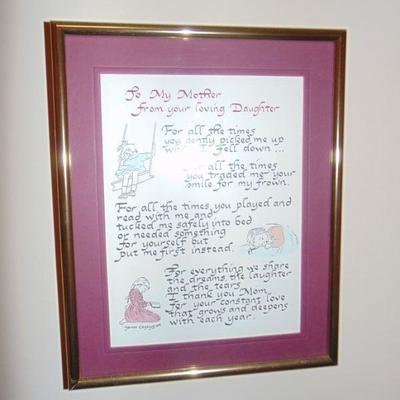 To My Mother
from your loving Daughter
For all the times
you gently picked me up
when I fell down ...
For all the times
you traded me your
smile for my frown.
For all the times you played and
read with me and
tucked me safely into bed
or needed something
for yourself but
put me first instead.
For everything we share
the dreams, the laughter
and the tears
I thank you Mom
for your constant love
that grows and deepens
with each year.